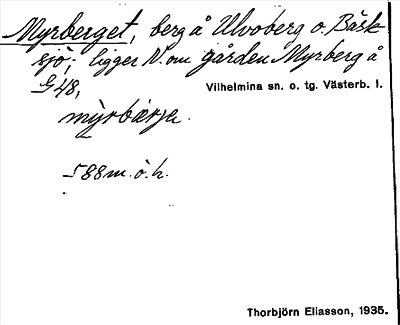 Myrberget, berg å Ulvoberg o. Bäsk-
sjö; ligger N. om gården Myrberg å
G 48,
Vilhelmina sn. o. tg. Västerb. l.
mỳrbærja.
588 m. ö. h.
Thorbjörn Eliasson, 1935.